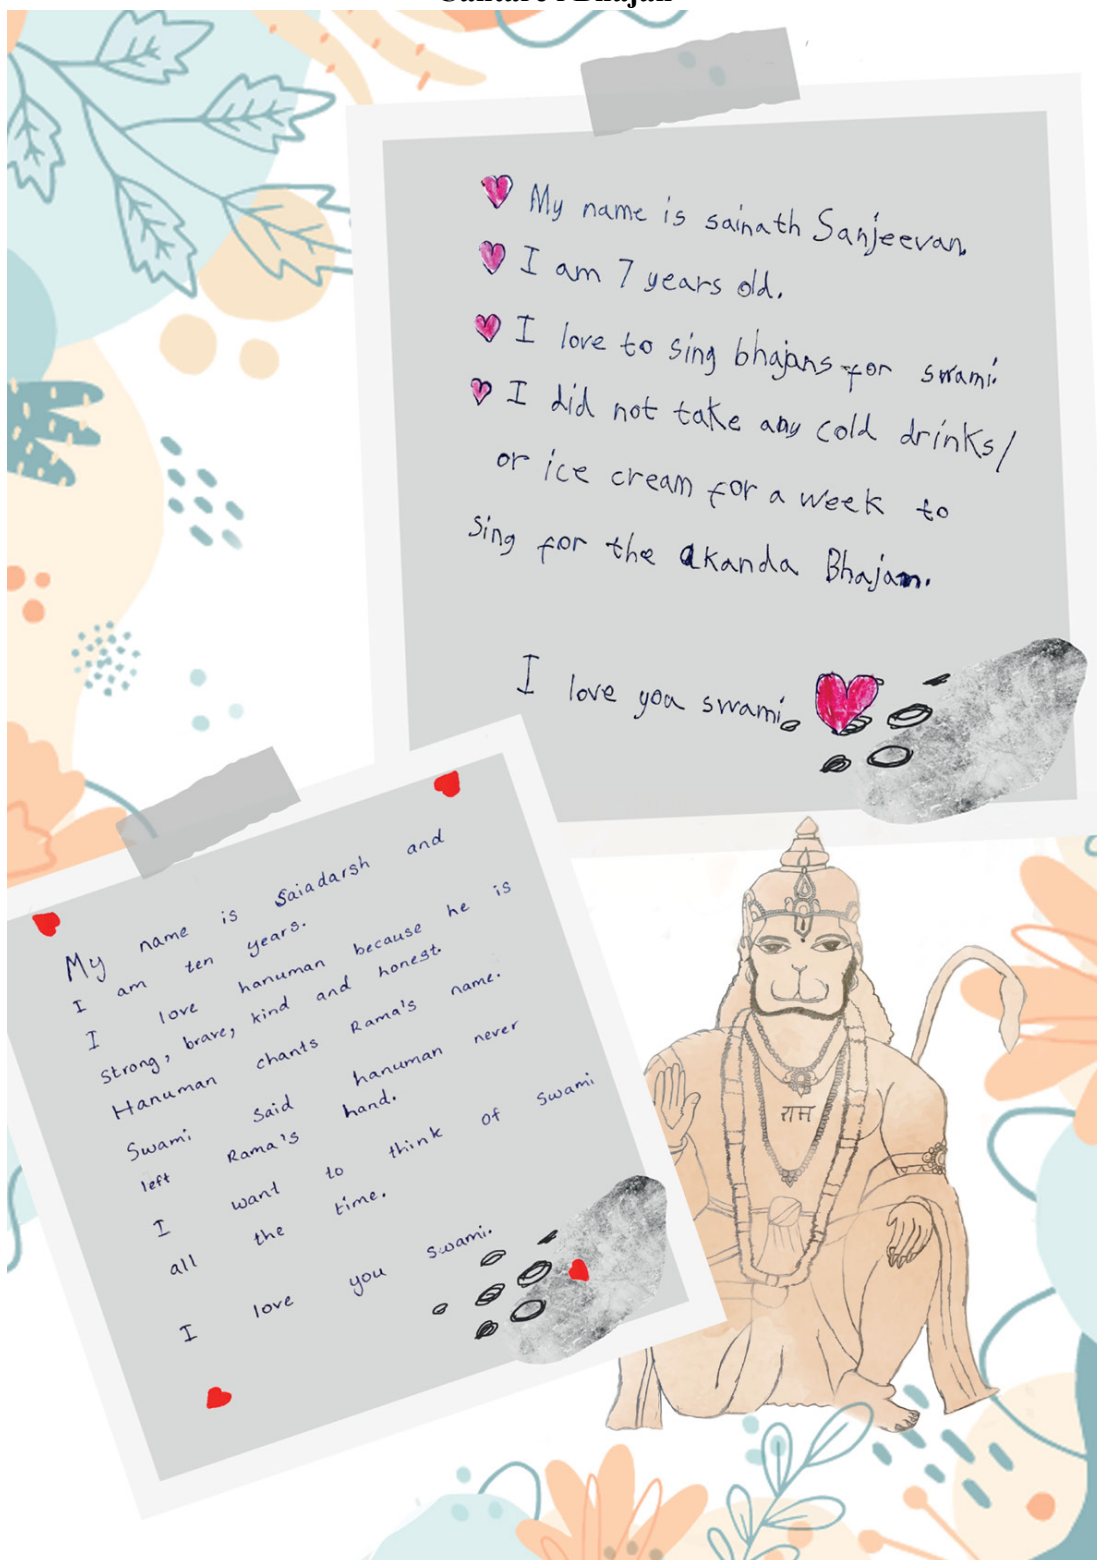 My name is sainath Sanjeevan.
I am 7 years old.
I love to sing bhajans for swami.
I did not take any cold drinks/
or ice cream for a week to
Sing for the akanda Bhajan.
I love you swami
My name is Saiadarsh and
I am ten years.
I love hanuman because he is
strong, brave, kind and honest.
Hanuman chants Rama's name.
Swami said hanuman never
left Rama's hand.
I want to think of swami
all the time.
I love you swami.
राम